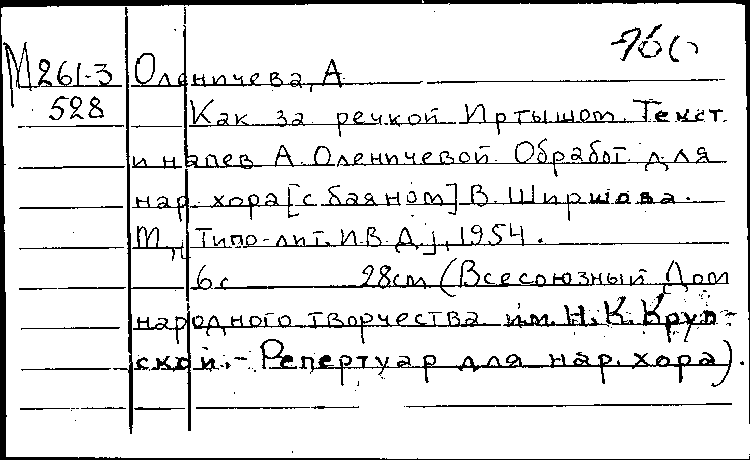 М261-3 Оленичева, А
528 Как за речкой Иртышом. Текст
и напев А. Оленичевой. Обработ. для
нар. хора [с баяном] В. Ширшова.
М., Типо-лит. И.В.Д.], 1954.
6с 28см (Всесоюзный Дом
народного творчества им. Н.К. Круп-
ской. - Репертуар для нар. хора).